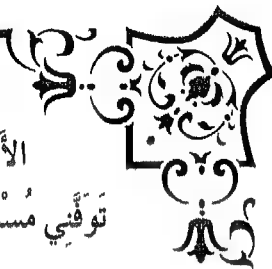 الأَ
تَوَفَّنِي مُسْ